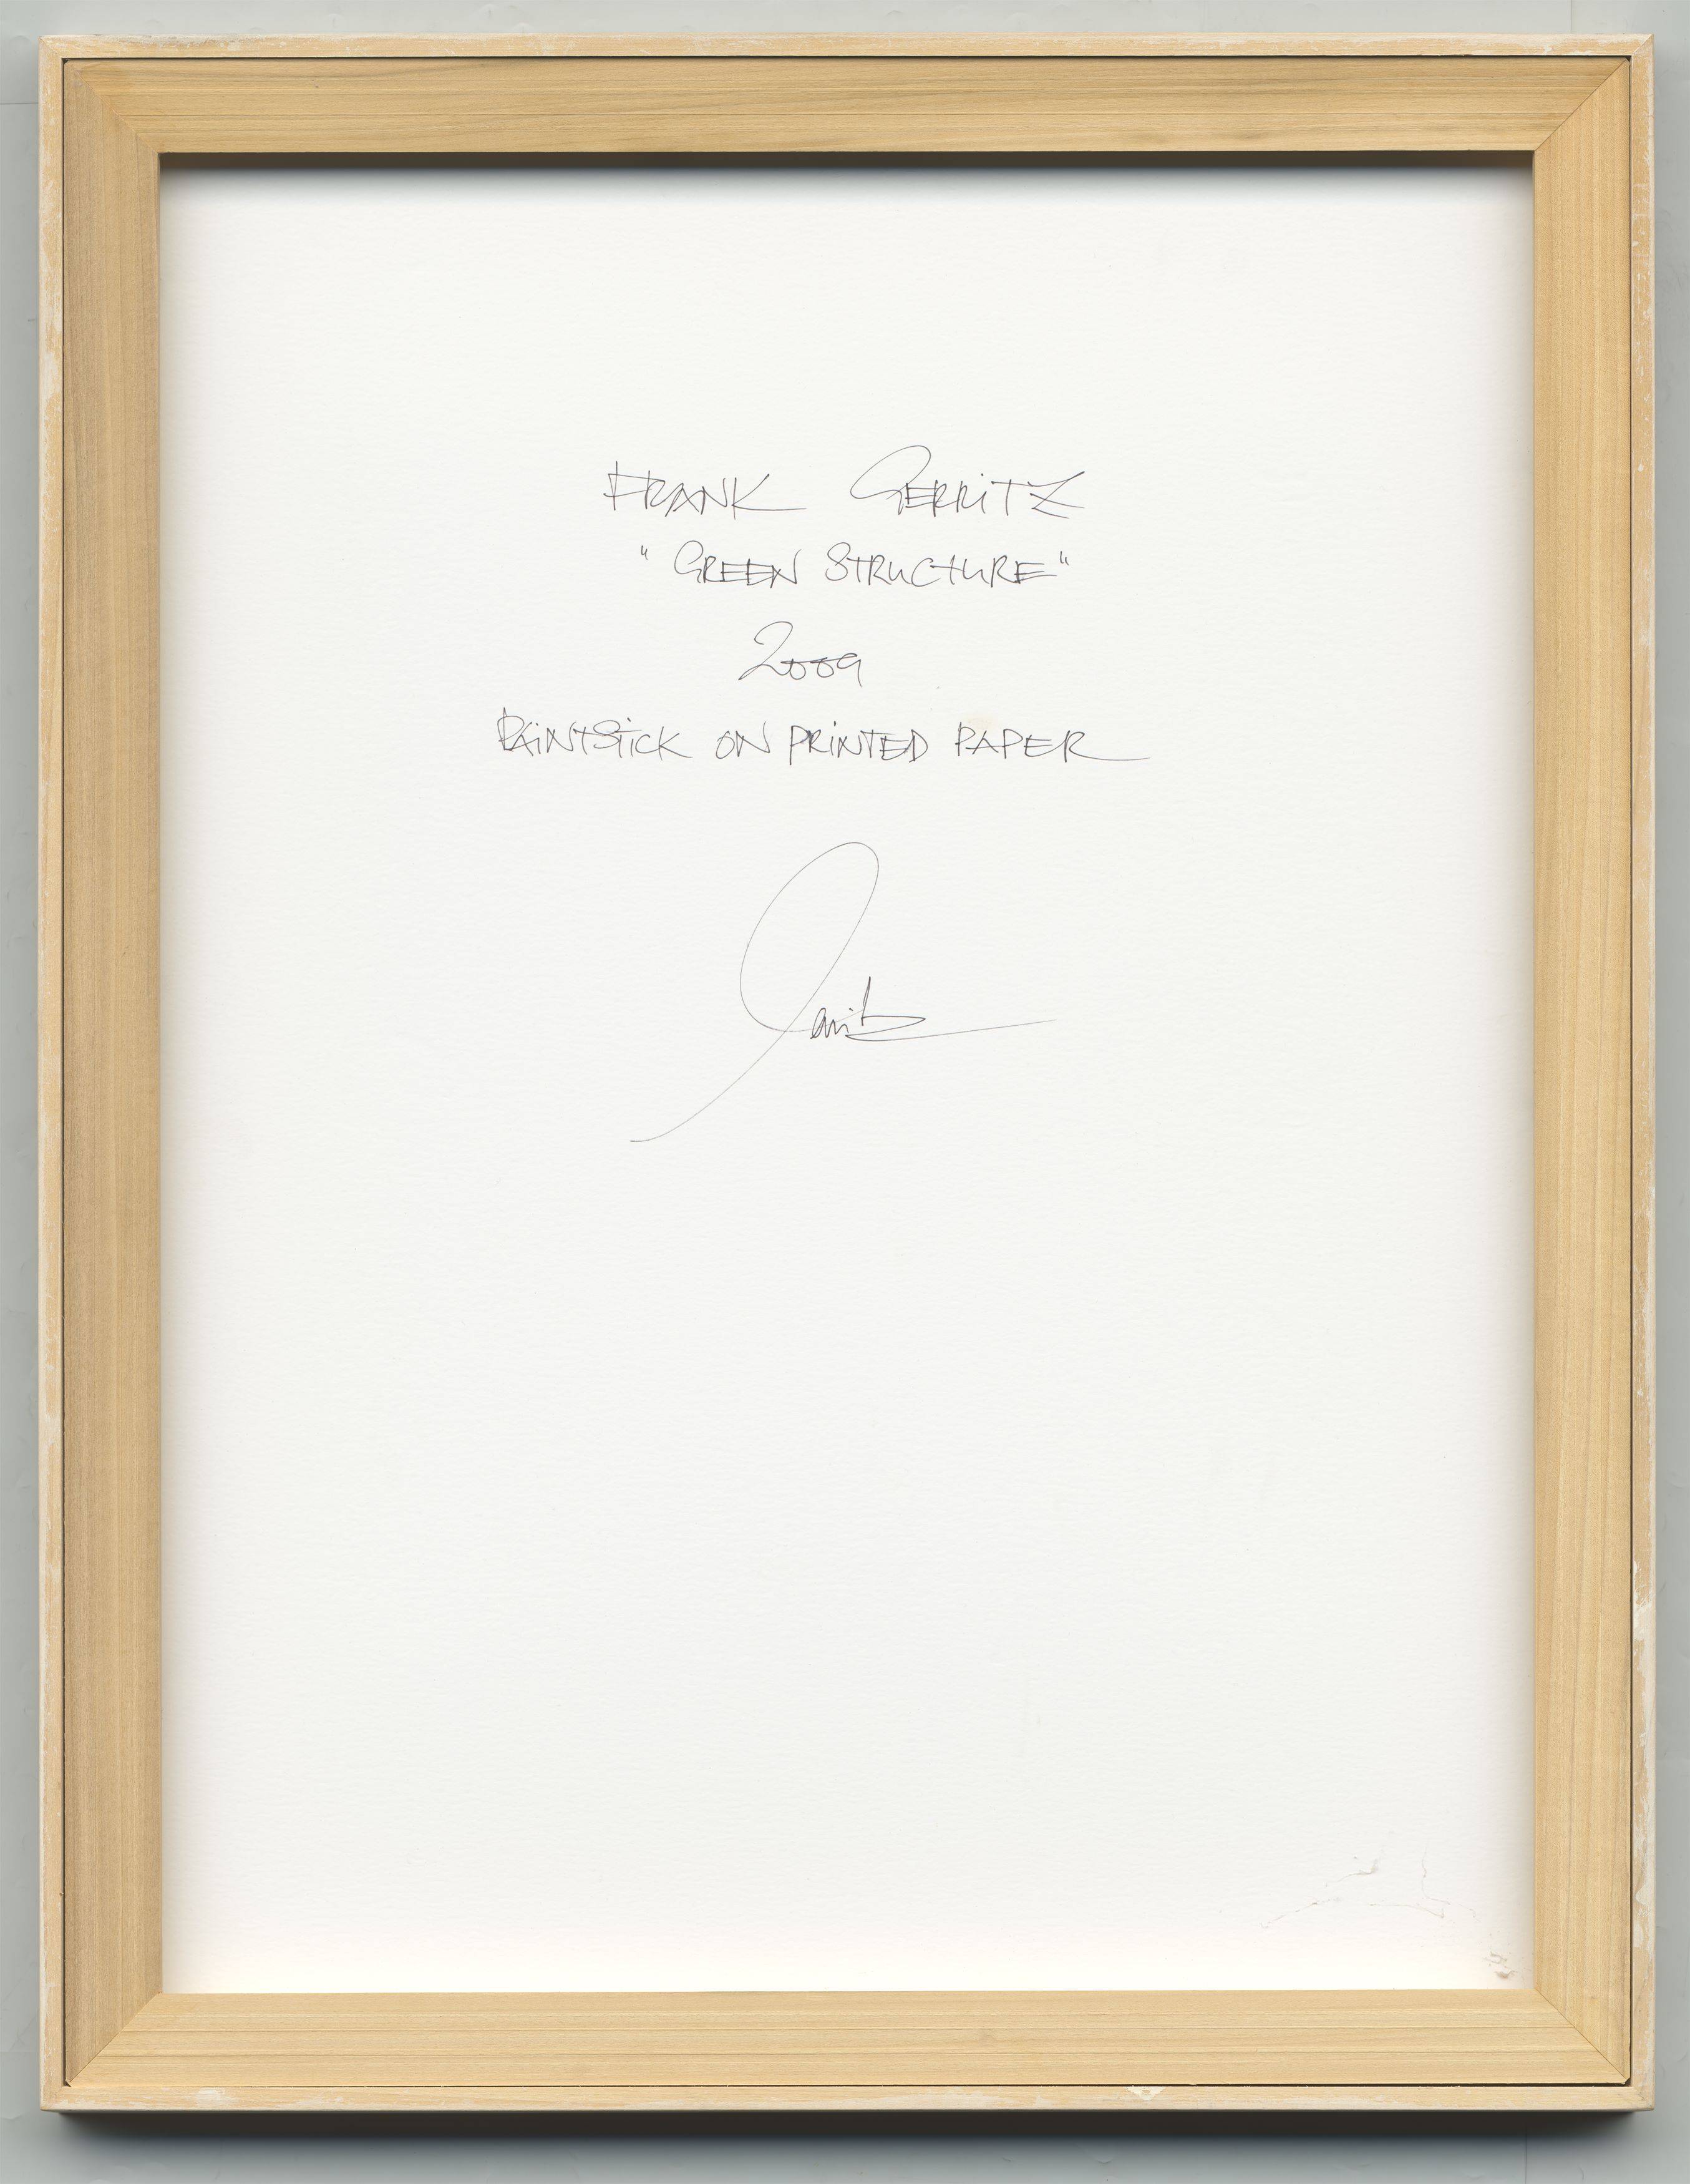 FRANK GERRITZ
"GREEN STRUCTURE"
2009
PAINTSTICK ON PRINTED PAPER
Gerritz